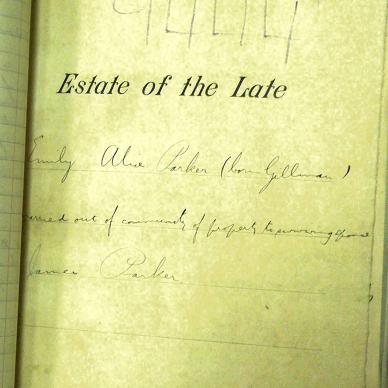 9444
Estate of the Late
Emily Alice Parker (born Gillman)
married out of community of property to surviving spouse
James Parker